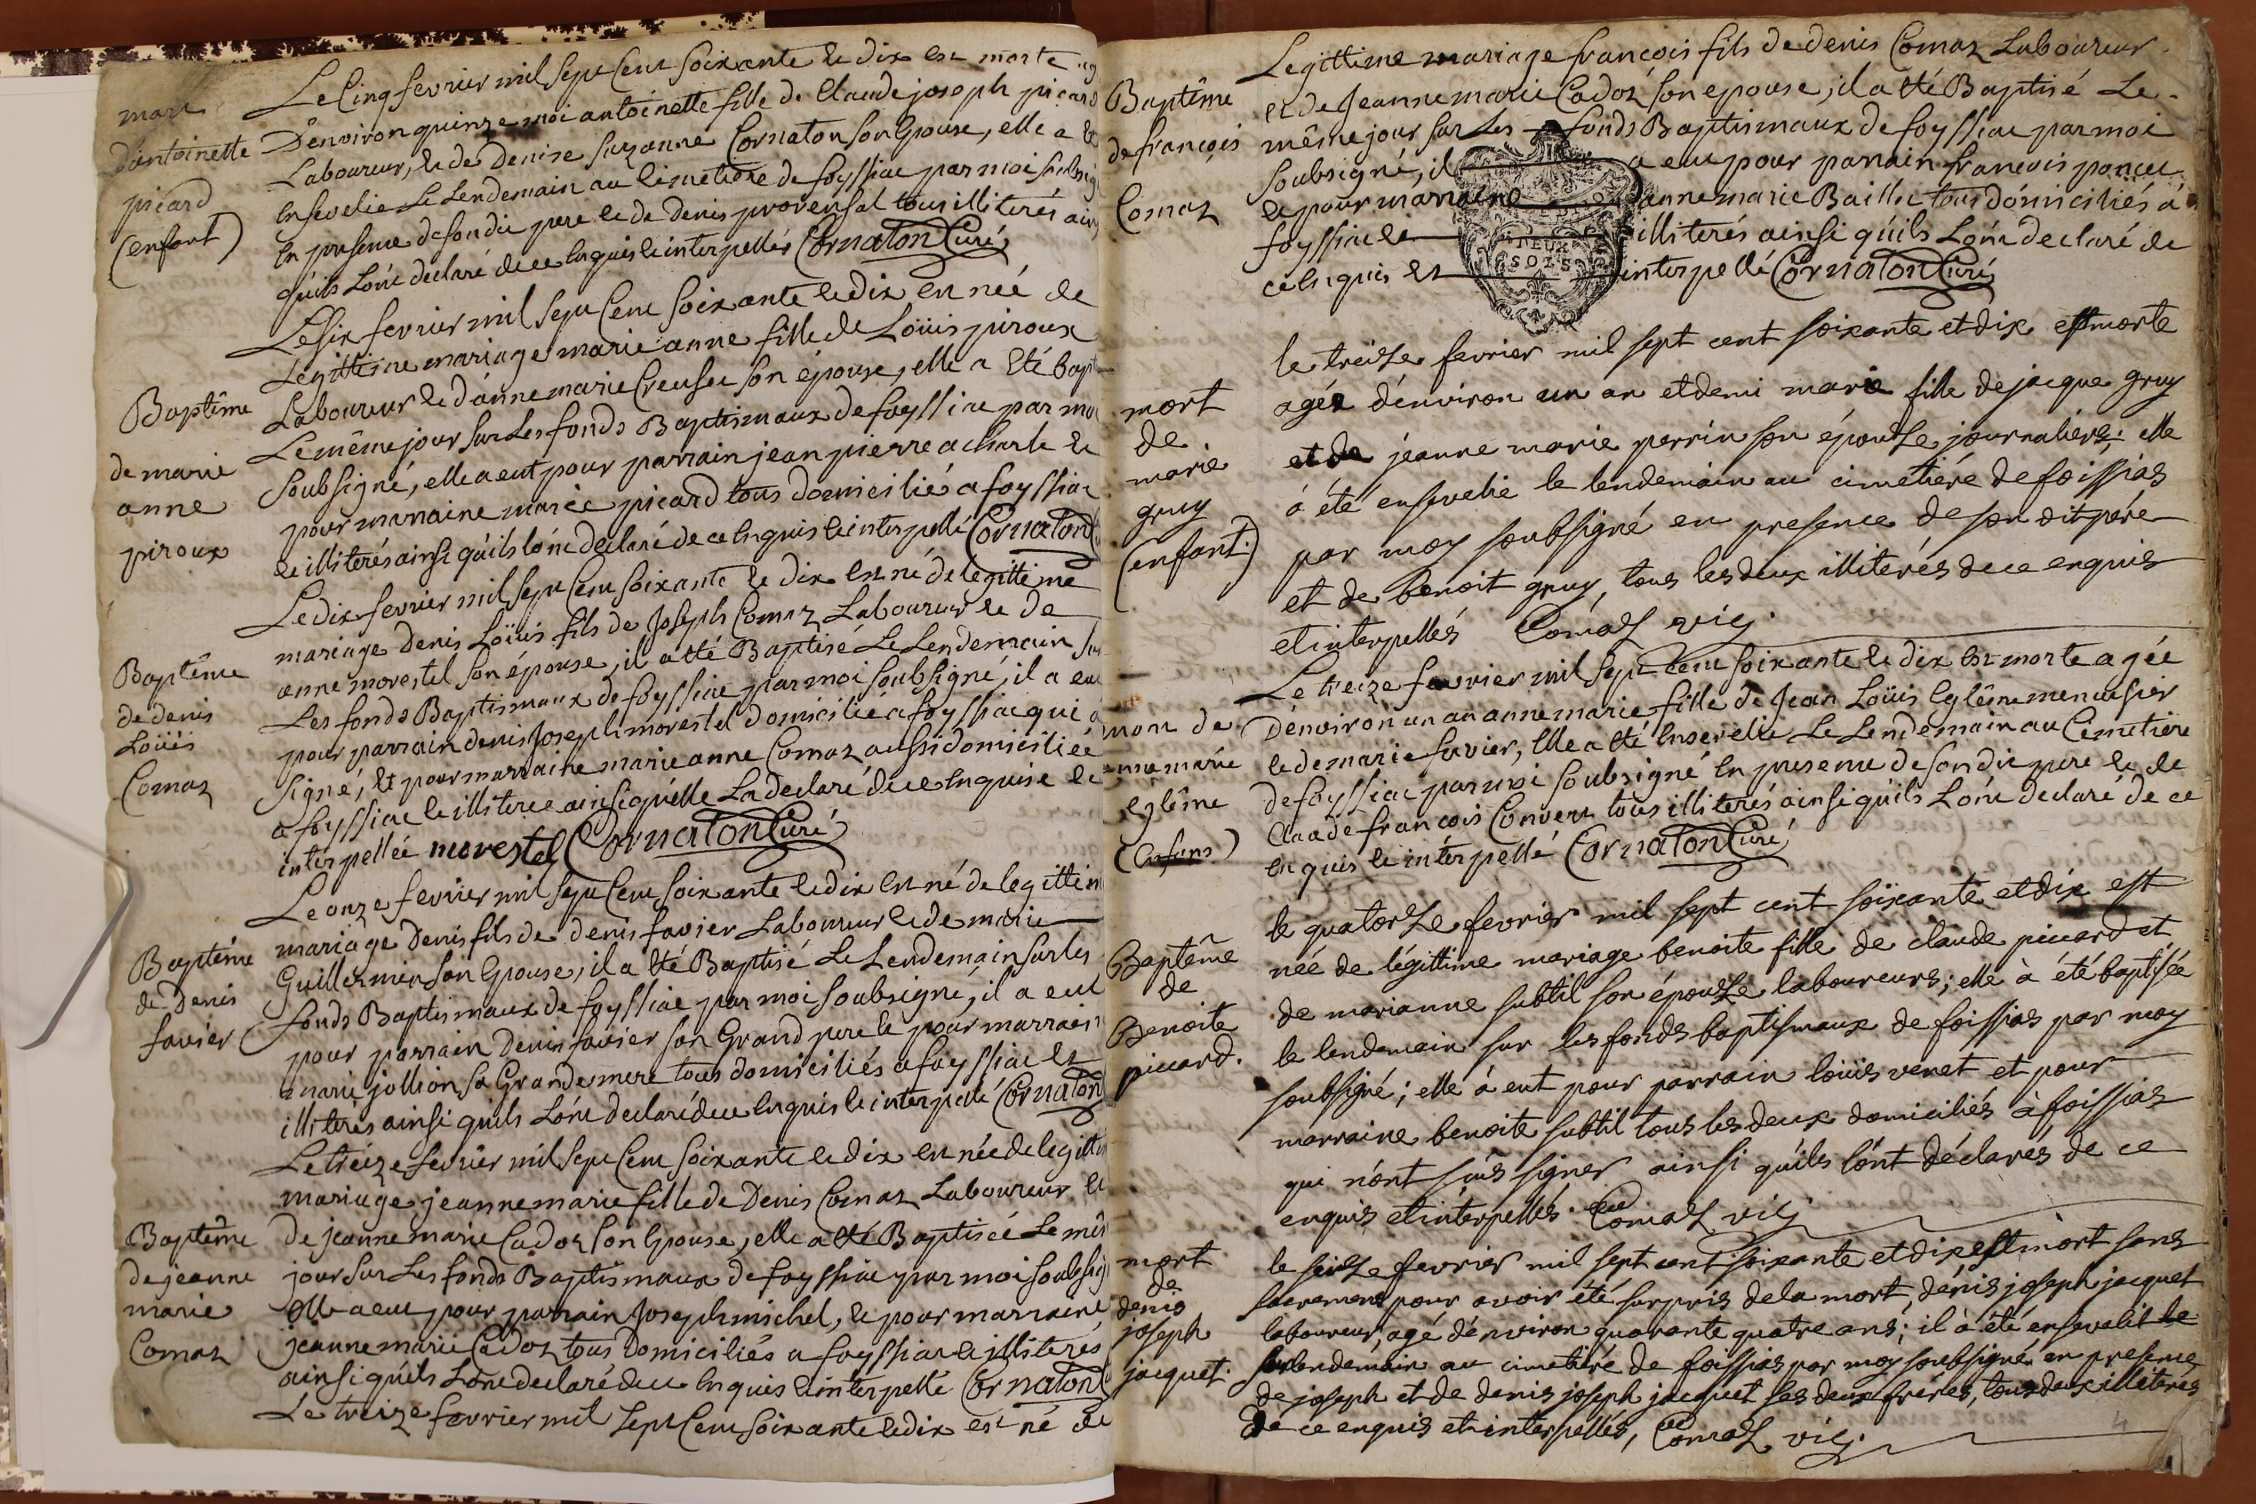 mort
d'antoinette
picard
(enfant)
Le Cinq fevrier mil sept Cent soixante et dix est morte
D'environ quinze moi antoinette fille de Claude joseph picard
Laboureur, et de Denise suzanne Cornaton son Epouse, elle a
Ensevelie Le Lendemain au Cimetiere de foyssiac par moi
En presence de son dit pere et de Denis provensal tous illiterés
qu'ils L'ont declaré de ce Enquis et interpellés Cornaton Curé
Baptême
de marie
anne
piroux
Le six fevrier mil sept Cent soixante et dix est née de
Legittime mariage marie anne fille de Loüis piroux
Laboureur et d'anne marie Creuset son épouse, elle a Eté
Le même jour sur Les fonds Baptismaux de foyssiac par moi
soubsigné, elle a eut pour parrain jean pierre acharle et
pour marraine marie picard tous domicilié a foyssiac
et illiterés ainsi qu'ils l'ont declaré de ce Enquis et interpellé Cornaton
Baptême
de denis
Loüis
Comaz
Le dix fevrier mil sept Cent soixante et dix est né de legittime
mariage denis Loüis fils de Joseph Comaz Laboureur et de
anne morestel son épouse, il a été Baptisé Le Lendemain
Les fonds Baptismaux de foyssiac par moi soubsigné, il a eut
pour parrain denis Joseph morestel domicilié a foyssiac qui a
signé, et pour marraine marie anne Comaz aussi domiciliée
a foyssiac et illiteree ainsi qu'elle La declaré de ce Enquise et
interpellée morestel Cornaton Curé
Baptême
de Denis
favier
Le onze fevrier mil sept Cent soixante et dix est né de legittim
mariage Denis fils de denis favier Laboureur et de marie
Guillermin son Epouse, il a été Baptisé Le Lendemain sur les
fonds Baptismaux de foyssiac par moi soubsigné, il a eut
pour parrain Denis favier son Grand pere et pour marrain
marie jollion sa Grande mere tous domiciliés a foyssiac et
illiterés ainsi qu'ils L'ont declaré de ce Enquis et interpellé Cornaton
Baptême
de jeanne
marie
Comaz
Le treize fevrier mil sept Cent soixante et dix est née de legitti
mariage jeanne marie fille de Denis Comaz Laboureur et
de jeanne marie Cadoz son Epouse, elle a été Baptisée Le mêm
jour sur Les fonds Baptismaux de foyssiac par moi soubsig
elle a eut pour parrain Joseph michel, et pour marraine
jeanne marie Cadoz tous domiciliés a foyssiac et illiterés
ainsi qu'ils L'ont declaré de ce Enquis et interpellé Cornaton
Le treize fevrier mil sept Cent soixante et dix est né de
Baptême
de francois
Comaz
Legittime mariage francois fils de denis Comaz Laboureur
et de Jeanne marie Cadoz son epouse; il a été Baptisé Le
même jour sur Les fonds Baptismaux de foyssiac par moi
soubsigné, il a eut pour parrain francois poncet
et pour marraine Jeanne marie Baillie tous domiciliés a
foyssiac et illiterés ainsi qu'ils L'ont declaré de
ce Enquis et interpellé Cornaton Curé
DEUX
SOLS
mort
de
marie
gruy
(enfant.)
le treize fevrier mil sept cent soixante et dix est morte
agée d'environ un an et demi marie fille de jacque gruy
et de jeanne marie perrin son épouse journaliérs; elle
à été ensevelie le lendemain au cimetiére de foissias
par moy soubsigné en presence de son dit pére
et de benoit gruy, tous les deux illitérés de ce enquis
et interpellés Comaz vic.
mort de
anne marie
Eglême
(Enfans)
Le treize fevrier mil sept Cent soixante et dix est morte agée
D'environ un an anne marie fille de Jean Loüis Eglême menuisier
et de marie favier, Elle a été Ensevelie Le Lendemain au Cimetiere
de foyssiac par moi soubsigné En presence de son dit pere et de
Claude francois Convert tous illiterés ainsi quils L'ont declaré de ce
Enquis et interpellé Cornaton Curé
Baptême
de
Benoite
piccard.
le quatorze fevrier mil sept cent soixante et dix est
née de légittime mariage benoite fille de claude piccard et
de marianne subtil son épouse laboureurs; elle à été baptisée
le lendemain sur les fonds baptismaux de foissias par moy
soubsigné; elle à eut pour parrain loüis venet et pour
marraine benoite subtil tous les deux domiciliés à foissias
qui n'ont sçus signer ainsi qu'ils l'ont déclarés de ce
enquis et intérpellés. Comaz vic
mort
de
denis
joseph
jacquet.
le seize fevrier mil sept cent soixante et dix est mort sans
sacremens pour avoir été surpris de la mort, dénis joseph jacquet
laboureur, agé d'environ quarante quatre ans; il à été ensevelit le
lendemain au cimetiré de foissias par moy soubsigné en presence
de joseph et de denis joseph jacquet ses deux fréres, tous deux illitérés
de ce enquis et interpellés, Comaz vic.
4